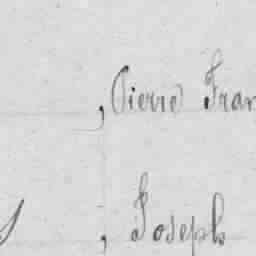 , Pierre Fran
, Joseph